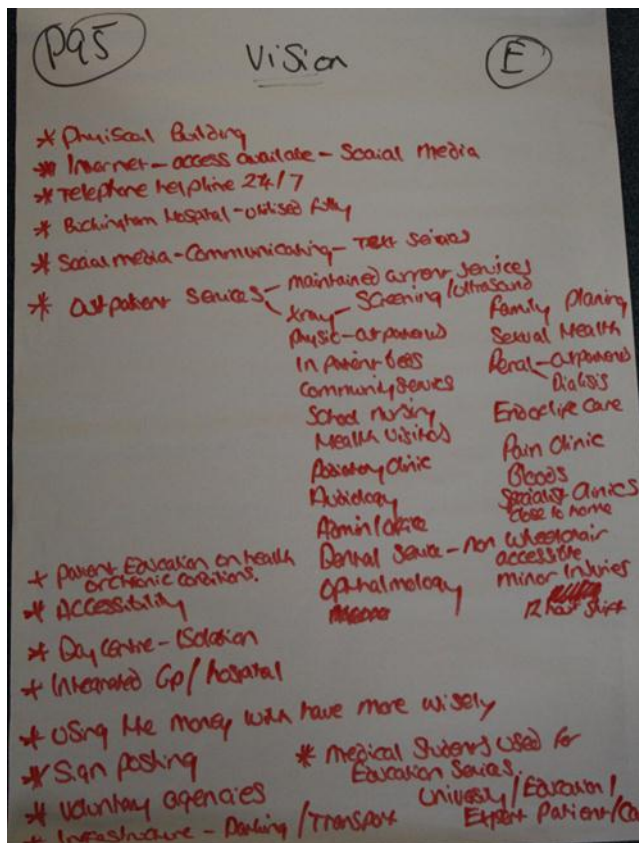 P95
Vision
E
* Phyiscal Building
* Internet - access available - Social Media
* Telephone helpline 24/7
* Buckingham Hospital - utilised fully
* Social media - Communicating - Text Services
* Out patient Services - maintained current services
Xray - Screening / Ultrasound
Physio - outpatients
In patient beds
Community Services
School Nursing
Health Visitors
Podiatry Clinic
Audiology
Admin / office
Dental Service - non wheelchair accessible
Opthalmology
Family Planing
Sexual Health
Renal - outpatients
Dialisis
End of life Care
Pain Clinic
Bloods
Specialist Clinics
close to home
Minor Injuries
12 hour shift
* Patient Education on health
or chronic conditions.
* Accessibility
* Day Centre - Isolation
* Integrated GP / hospital
* Using the money with have more wisely
* Sign posting
* Voluntary agencies
* Infrastructure - Parking / Transport
* Medical Students used for
Education Services.
University / Education /
Expert Patient /